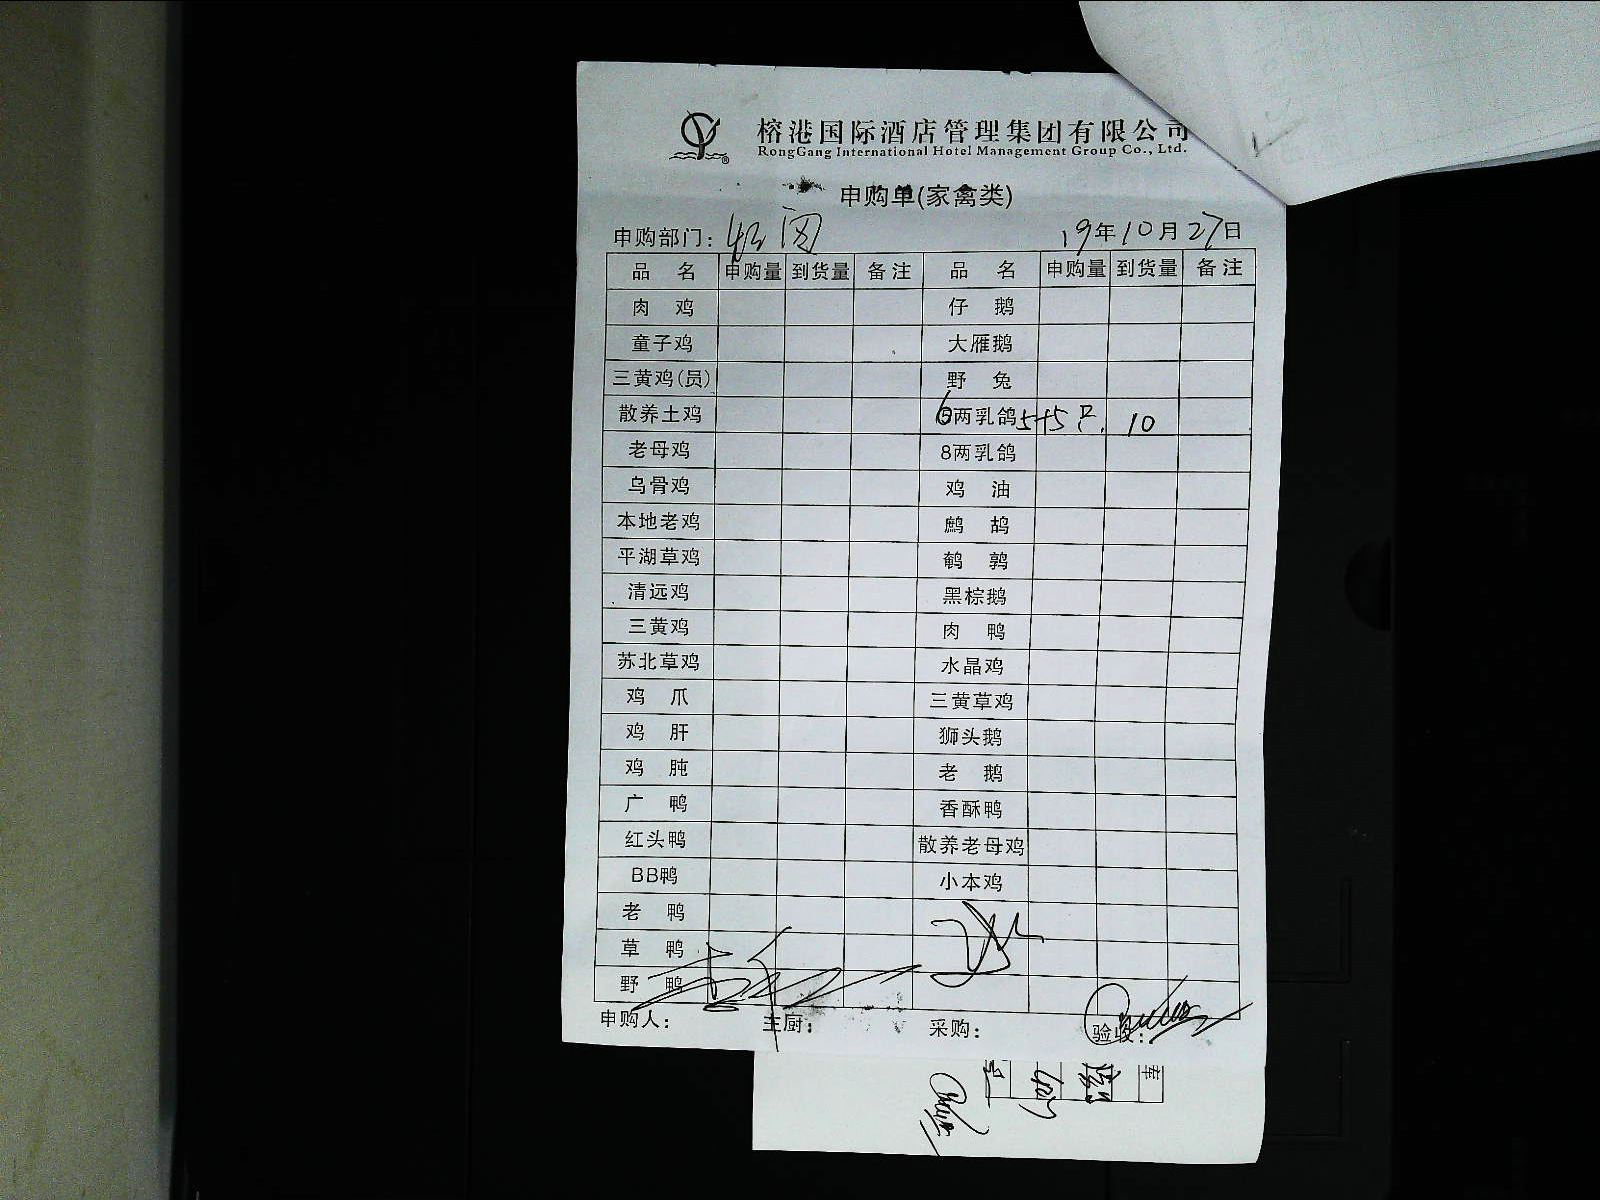 榕港国际酒店管理集团有限公司
RongGang International Hotel Management Group Co., Ltd.
®
申购单(家禽类)
申购部门： 19年10月27日
品 名 申购量 到货量 备注 品 名 申购量 到货量 备注
肉 鸡 仔 鹅
童子鸡 大雁鹅
三黄鸡(员) 野 兔
散养土鸡 6两乳鸽 5+5只. 10
老母鸡 8两乳鸽
乌骨鸡 鸡 油
本地老鸡 鹧 鸪
平湖草鸡 鹌 鹑
清远鸡 黑棕鹅
三黄鸡 肉 鸭
苏北草鸡 水晶鸡
鸡 爪 三黄草鸡
鸡 肝 狮头鹅
鸡 肫 老 鹅
广 鸭 香酥鸭
红头鸭 散养老母鸡
BB鸭 小本鸡
老 鸭
草 鸭
野 鸭
申购人： 主厨： 采购： 验收：